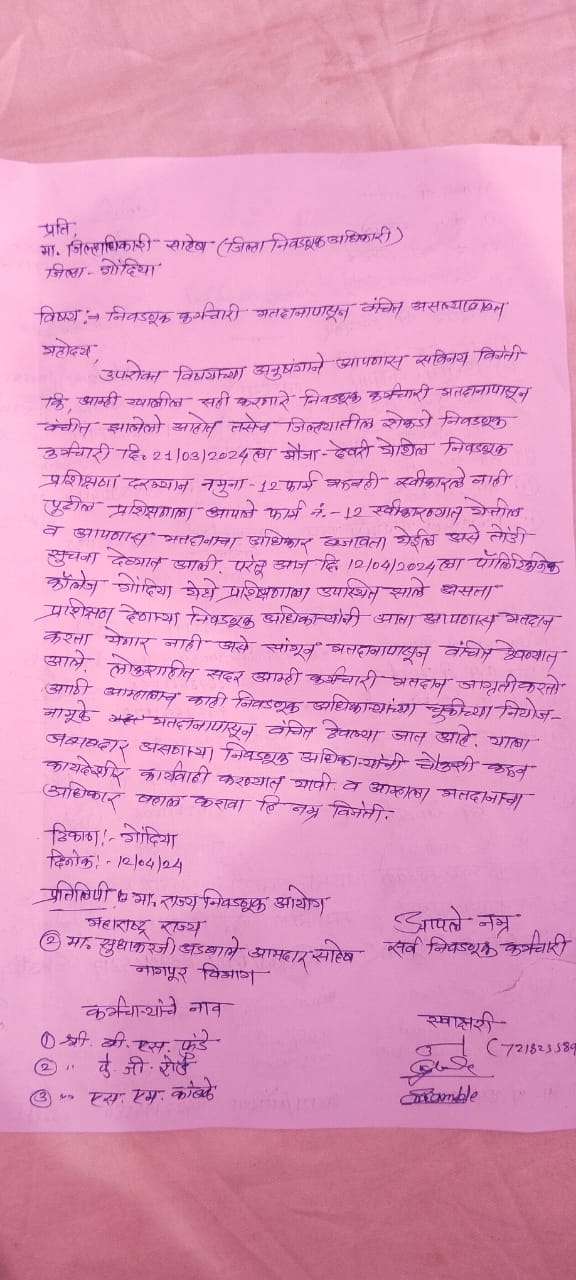 प्रति,
मा. जिल्हाधिकारी साहेब (जिल्हा निवडणूक अधिकारी)
जिल्हा - गोंदिया
विषय :→ निवडणूक कर्मचारी मतदानापासून वंचित असल्याबाबत
महोदय,
उपरोक्त विषयाच्या अनुषंगाने आपणास सविनय विनंती
कि, आम्ही खालील सही करणारे निवडणूक कर्मचारी मतदानापासून
वंचीत झालेलो आहोत तसेच जिल्ह्यातील शेकडो निवडणूक
कर्मचारी दि. 21/03/2024 ला मौजा - देवरी येथिल निवडणूक
प्रशिक्षणा दरम्यान नमुना - 12 फार्म स्वीकारले नाही
पुढील प्रशिक्षणाला आपले फार्म नं. - 12 स्वीकारण्यात येतील
व आपणास मतदानाचा अधिकार बजावता येईल असे तोंडी
सुचना देण्यात आली. परंतू आज दि. 12/04/2024 ला पॉलिटेक्निक
कॉलेज गोंदिया येथे प्रशिक्षणाला उपस्थित झाले असता
प्रशिक्षण देणाऱ्या निवडणूक अधिकाऱ्यांनी आता आपणास मतदान
करता येणार नाही असे सांगून मतदानापासून वंचित ठेवण्यात
आले. लोकशाहीत सदर आम्ही कर्मचारी मतदान जागृती करतो
आणि आम्हालाच काही निवडणूक अधिकाऱ्यांच्या चुकीच्या नियोज-
नामुळे मतदानापासून वंचित ठेवण्या जात आहे. याला
जबाबदार असणाऱ्या निवडणूक अधिकाऱ्यांची चौकशी करून
कायदेशीर कार्यवाही करण्यात यावी व आम्हाला मतदानाचा
अधिकार बहाल करावा हि नम्र विनंती.
ठिकाण :- गोंदिया
दिनांक :- 12/04/24
प्रतिलिपी मा. राज्य निवडणूक आयोग
महाराष्ट्र राज्य
② मा. सुधाकरजी अडबाले आमदार साहेब
नागपूर विभाग
आपले नम्र
सर्व निवडणूक कर्मचारी
कर्मचाऱ्यांचे नाव
स्वाक्षरी
① श्री. बी. एस. फुंडे
② " जी.
③ " एस. एम. कांबळे